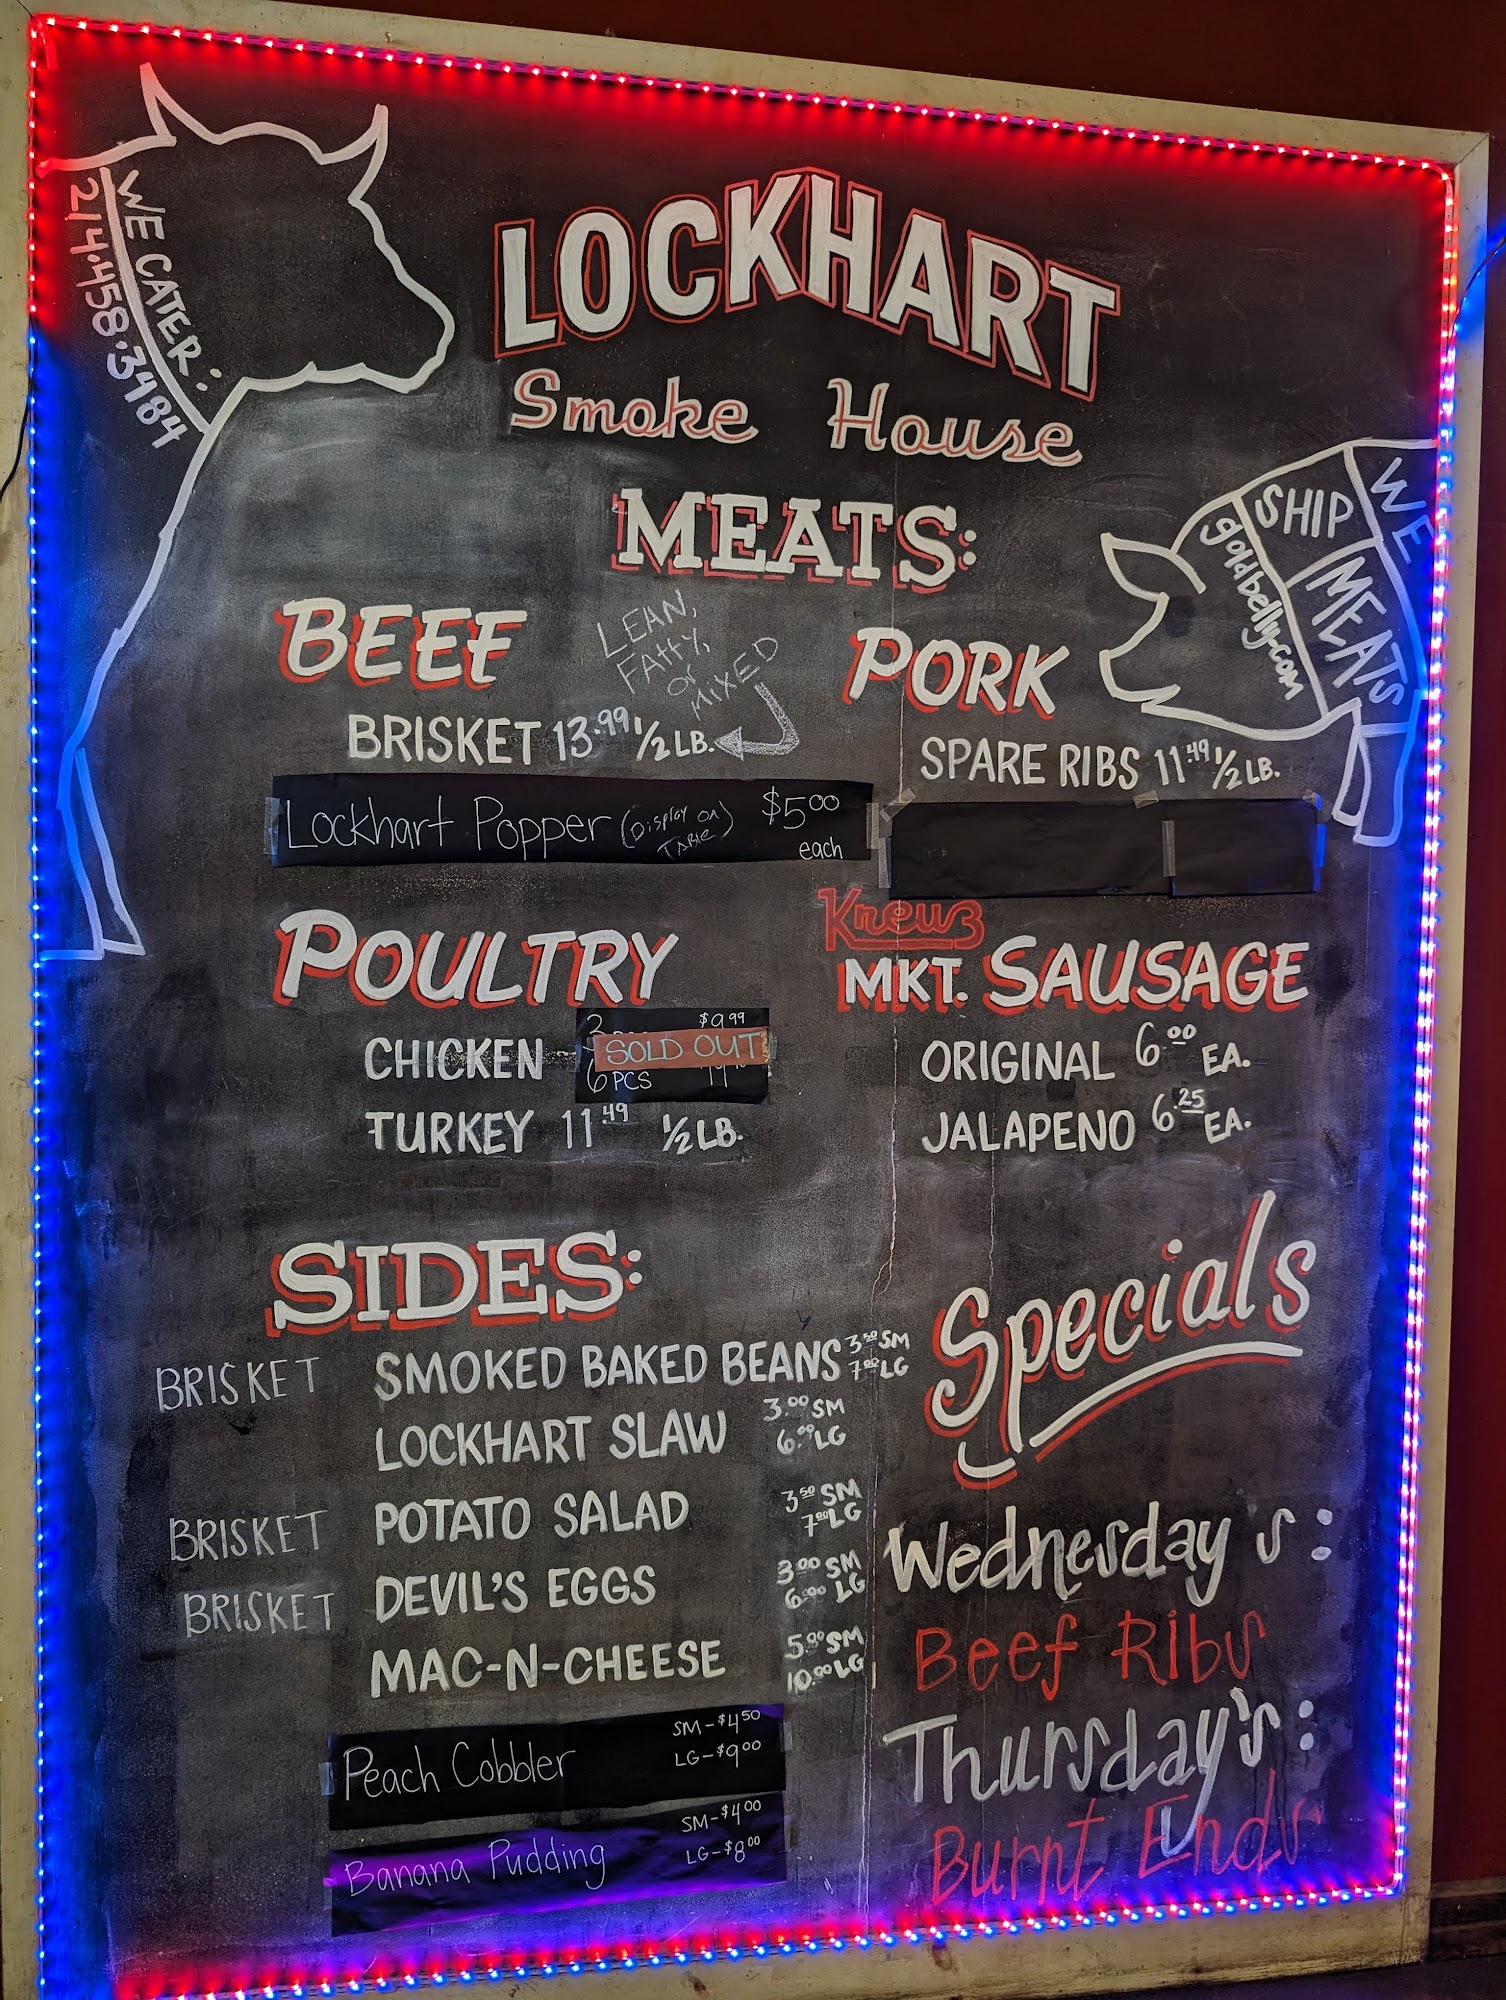 WE CATER:
214.458.3484
LOCKHART
Smoke House
WE
SHIP
MEATS
goldbelly.com
MEATS:
BEEF
LEAN,
FATTY,
or
MIXED
BRISKET 13.99 1/2 LB.
Lockhart Popper (Display on Table) $5.00 each
PORK
SPARE RIBS 11.49 1/2 LB.
POULTRY
CHICKEN
3 $9.99
SOLD OUT
6 PCS
TURKEY 11.49 1/2 LB.
Kreuz
MKT. SAUSAGE
ORIGINAL 6.00 EA.
JALAPENO 6.25 EA.
SIDES:
BRISKET SMOKED BAKED BEANS 3.50 SM
7.00 LG
LOCKHART SLAW 3.00 SM
6.00 LG
BRISKET POTATO SALAD 3.50 SM
7.00 LG
BRISKET DEVIL'S EGGS 3.00 SM
6.00 LG
MAC-N-CHEESE 5.00 SM
10.00 LG
Peach Cobbler SM-$4.50
LG-$9.00
Banana Pudding SM-$4.00
LG-$8.00
Specials
Wednesday's:
Beef Ribs
Thursday's:
Burnt Ends